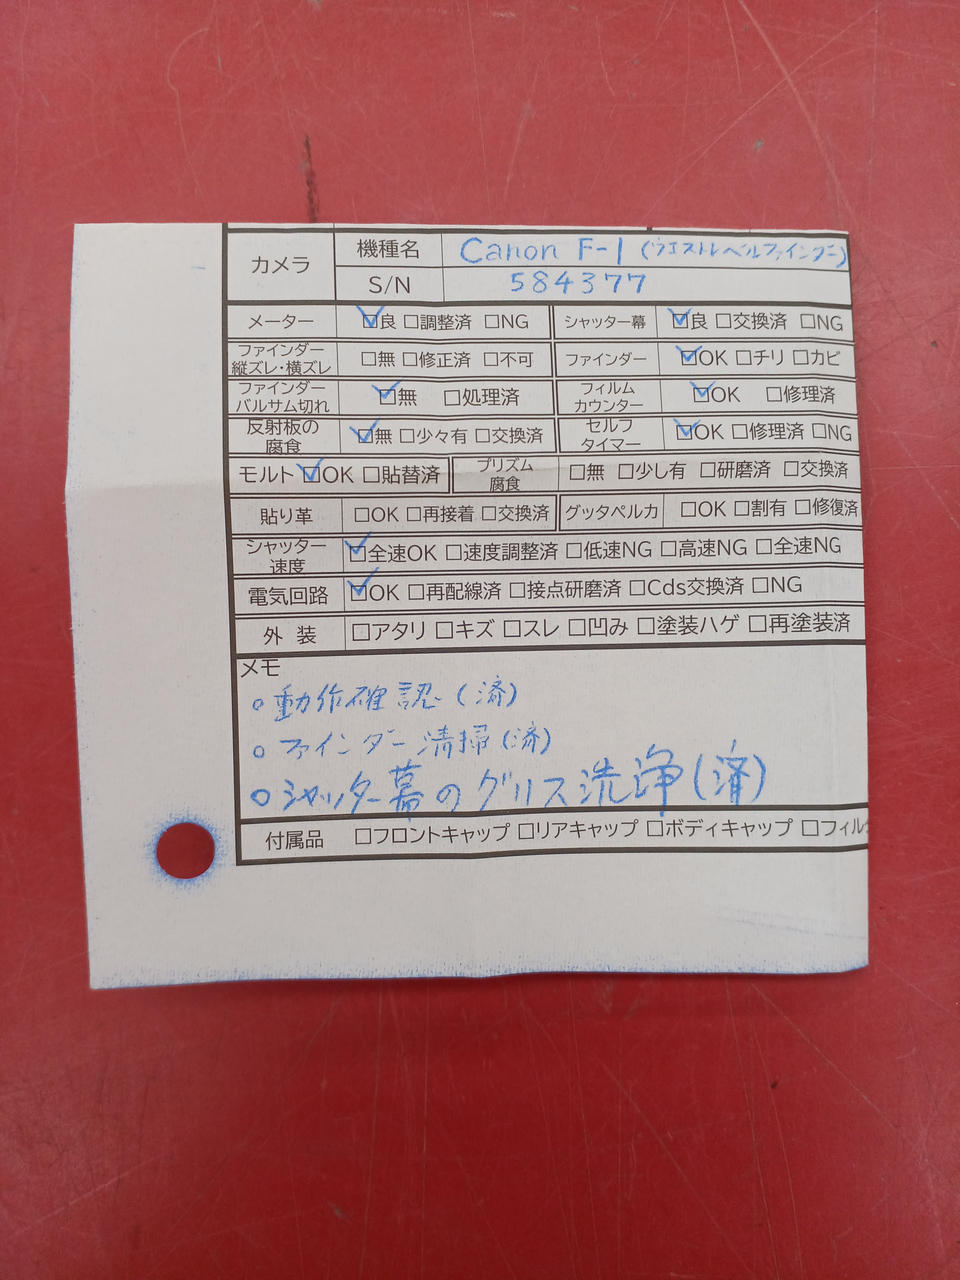 カメラ 機種名 Canon F-1 (ウエストレベルファインダー)
S/N 584377
メーター ☑良 □調整済 □NG シャッター幕 ☑良 □交換済 □NG
ファインダー縦ズレ・横ズレ □無 □修正済 □不可 ファインダー ☑OK □チリ □カビ
ファインダーバルサム切れ ☑無 □処理済 フィルムカウンター ☑OK □修理済
反射板の腐食 ☑無 □少々有 □交換済 セルフタイマー ☑OK □修理済 □NG
モルト ☑OK □貼替済 プリズム腐食 □無 □少し有 □研磨済 □交換済
貼り革 □OK □再接着 □交換済 グッタペルカ □OK □割有 □修復済
シャッター速度 ☑全速OK □速度調整済 □低速NG □高速NG □全速NG
電気回路 ☑OK □再配線済 □接点研磨済 □Cds交換済 □NG
外装 □アタリ □キズ □スレ □凹み □塗装ハゲ □再塗装済
メモ
○動作確認(済)
○ファインダー清掃(済)
○シャッター幕のグリス洗浄(済)
付属品 □フロントキャップ □リアキャップ □ボディキャップ □フィル